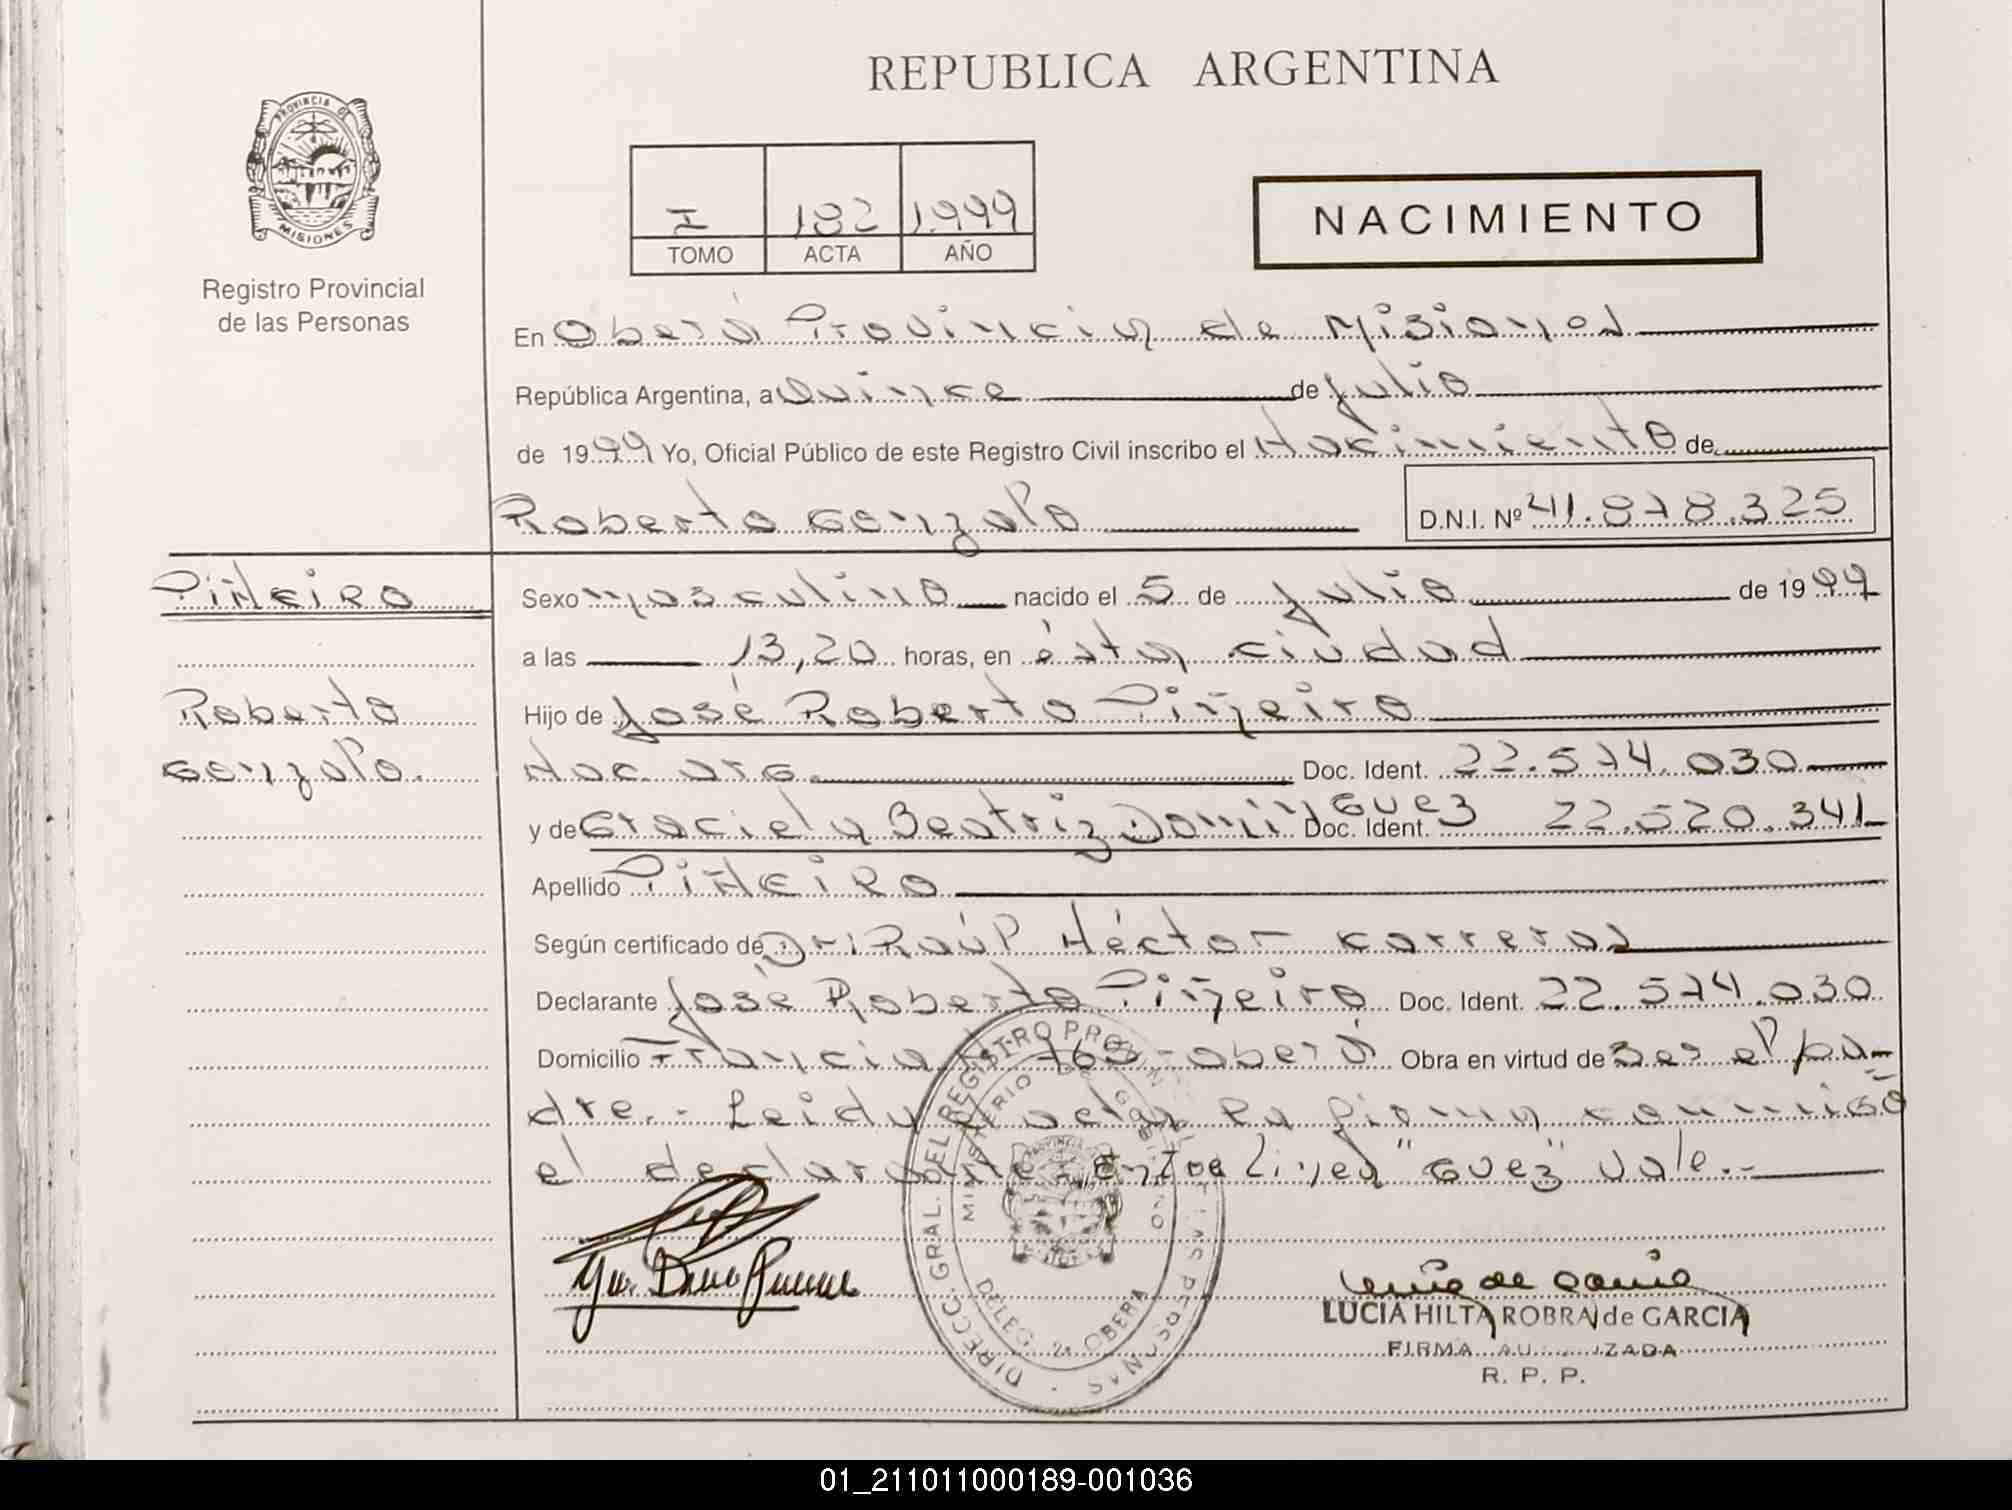 REPUBLICA ARGENTINA
PROVINCIA DE
MISIONES
Registro Provincial
de las Personas
I 182 1.999
TOMO ACTA AÑO
NACIMIENTO
En Oberá Provincia de Misiones
República Argentina, a Quince de julio
de 1999 Yo, Oficial Público de este Registro Civil inscribo el Nacimiento de
Roberto Gonzalo D.N.I. Nº 41.878.325
Piñeiro
Roberto
Gonzalo.
Sexo masculino nacido el 5 de julio de 1999
a las 13,20 horas, en ésta ciudad
Hijo de José Roberto Piñeiro
Nac. arg. Doc. Ident. 22.574.030
y de Graciela Beatriz Domin guez Doc. Ident. 22.520.341
Apellido Piñeiro
Según certificado de Dr. Raúl Héctor Carreras
Declarante José Roberto Piñeiro Doc. Ident. 22.574.030
Domicilio Francia 760-Oberá Obra en virtud de ser el pa-
dre.- Leida el acta la firma conmigo
el declarante. Entre linea "guez" vale.-
DIRECC. GRAL. DEL REGISTRO PROVINCIAL DE LAS PERSONAS
MINISTERIO DE GOBIERNO
DELEG. 2ª OBERA
LUCIA HILTA ROBRA de GARCIA
FIRMA AUTORIZADA
R. P. P.
01_211011000189-001036